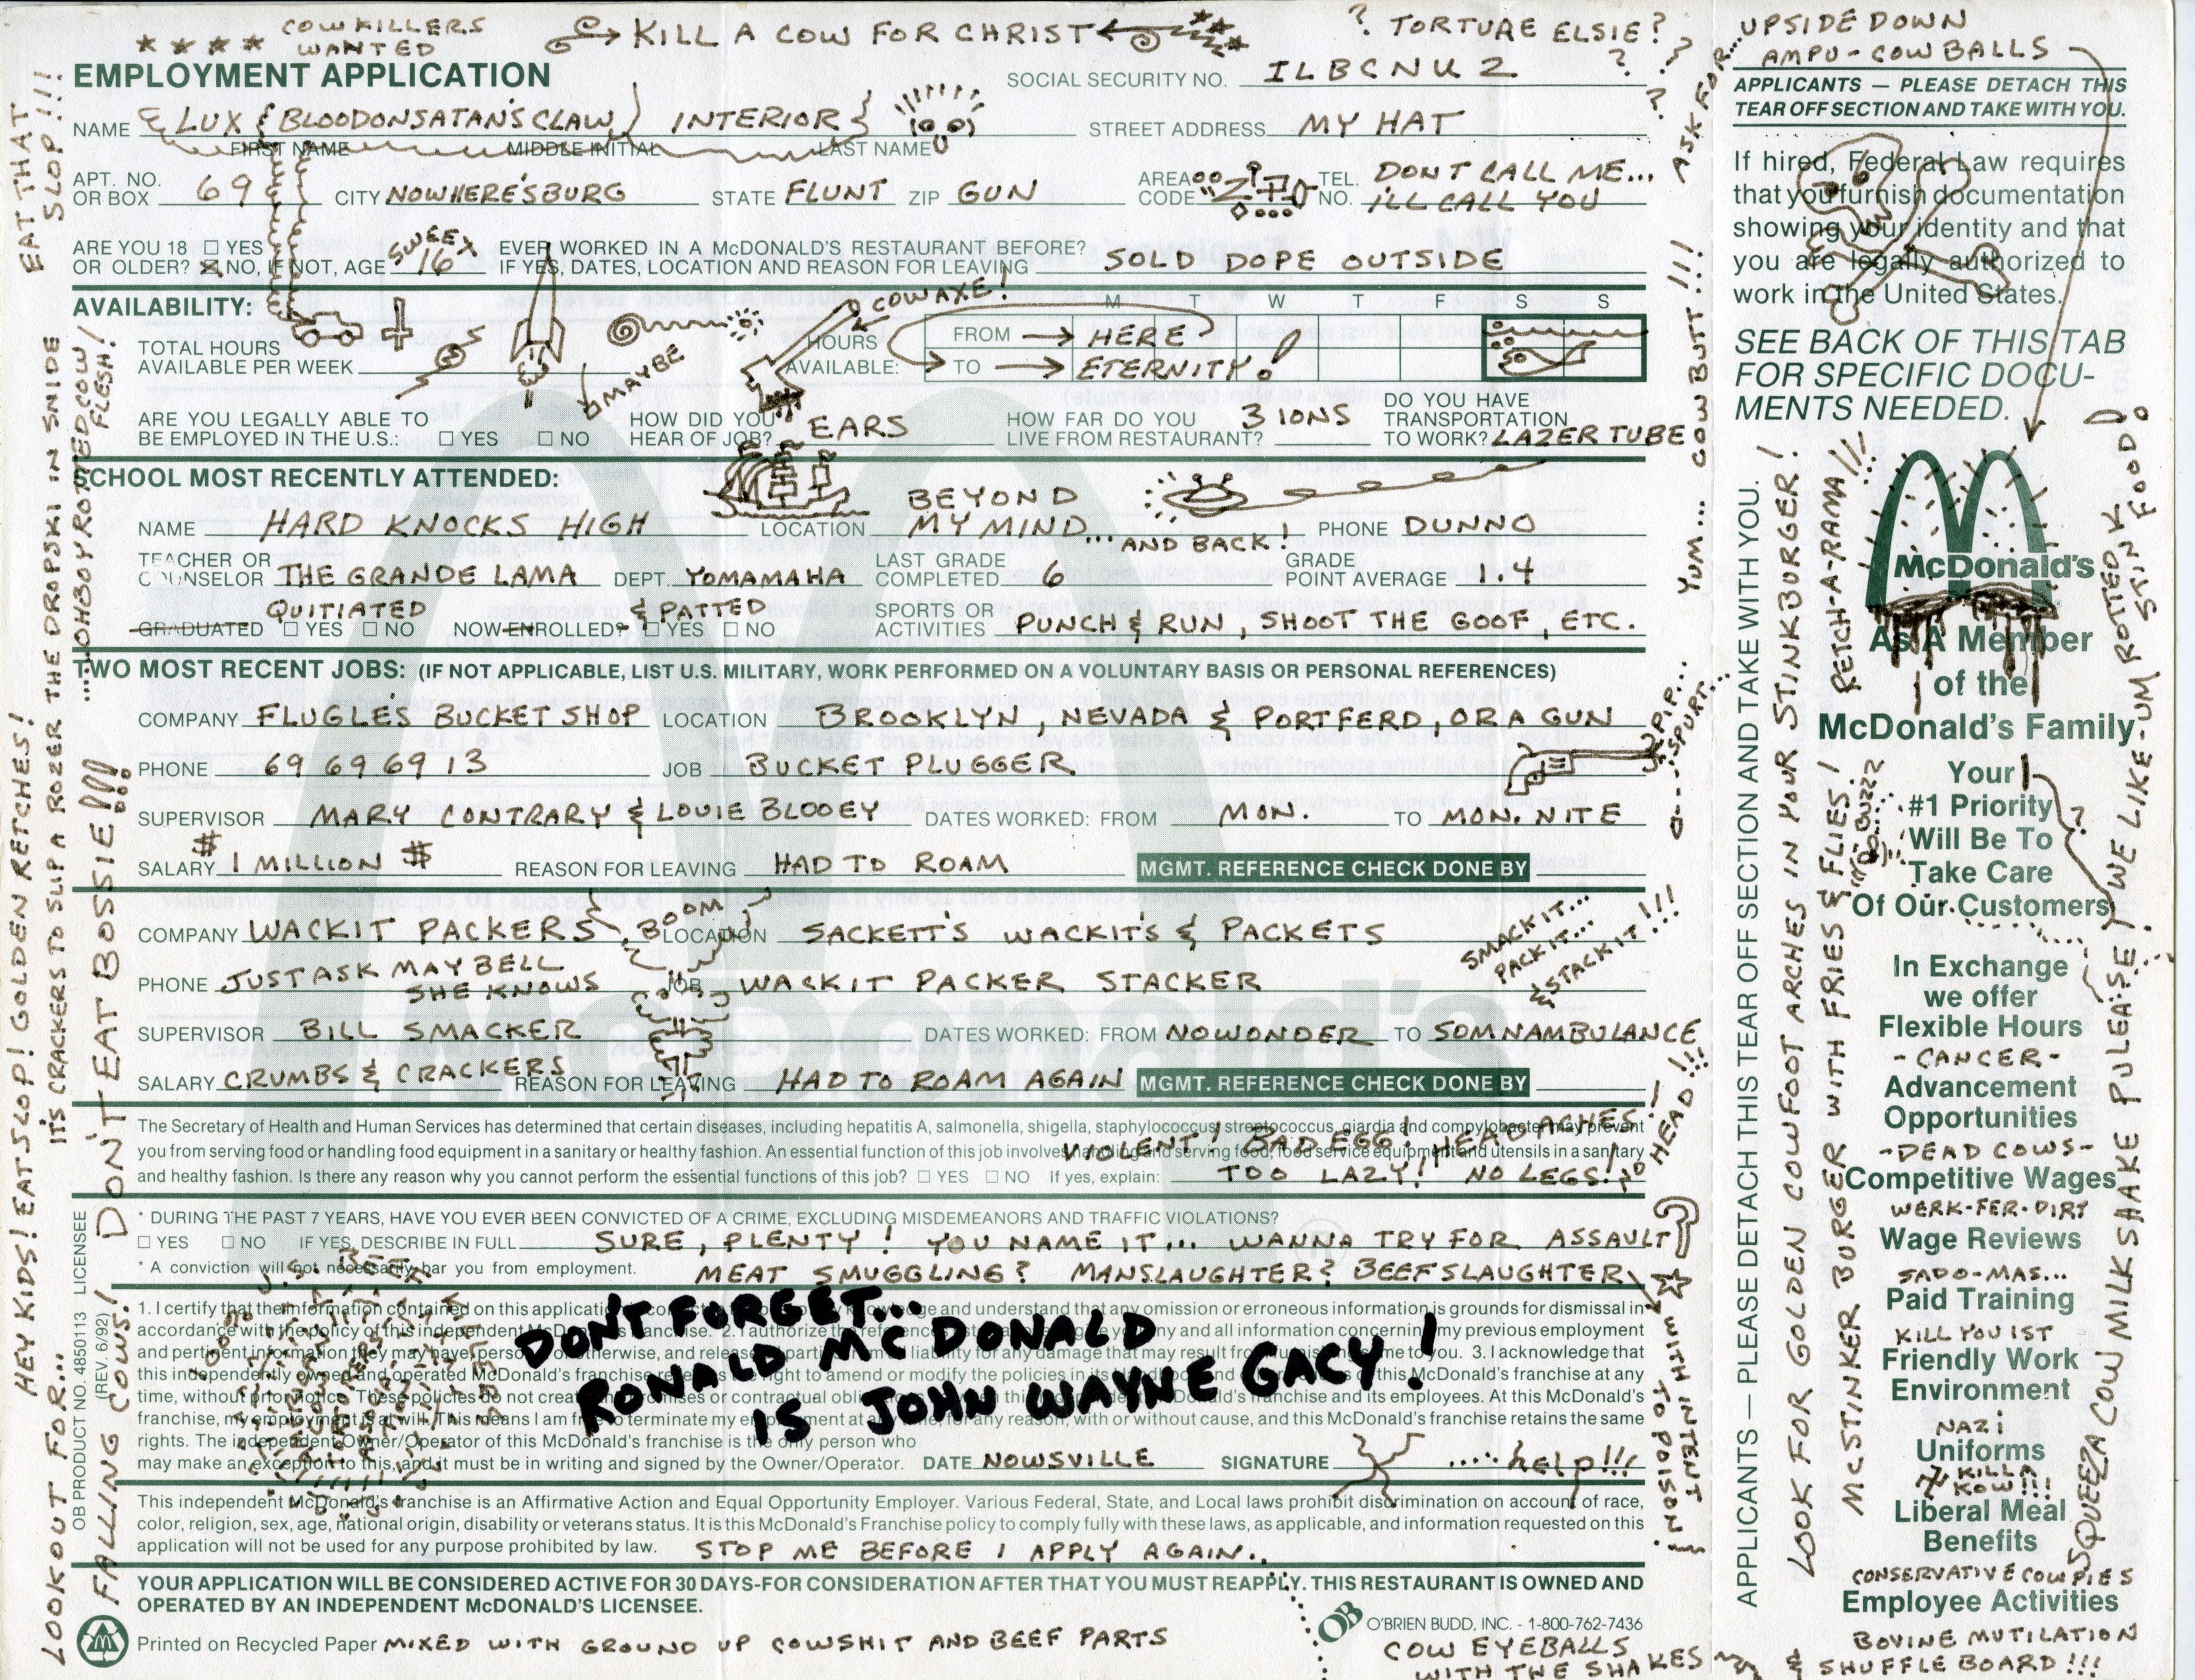 COW KILLERS WANTED
KILL A COW FOR CHRIST
? TORTURE ELSIE? ? ? ? ?
EMPLOYMENT APPLICATION
SOCIAL SECURITY NO. ILBCNU2
NAME LUX { BLOODONSATAN'S CLAW } INTERIOR
FIRST NAME MIDDLE INITIAL LAST NAME
STREET ADDRESS MY HAT
APT. NO. OR BOX 69 CITY NOWHERE'SBURG STATE FLUNT ZIP GUN
AREA CODE TEL. NO. DONT CALL ME... I'LL CALL YOU
ARE YOU 18 OR OLDER? ☐ YES ☒ NO, IF NOT, AGE SWEET 16
EVER WORKED IN A McDONALD'S RESTAURANT BEFORE?
IF YES, DATES, LOCATION AND REASON FOR LEAVING SOLD DOPE OUTSIDE
AVAILABILITY:
COW AXE!
M T W T F S S
TOTAL HOURS AVAILABLE PER WEEK
HOURS AVAILABLE: FROM → HERE
TO → ETERNITY!
MAYBE
ARE YOU LEGALLY ABLE TO BE EMPLOYED IN THE U.S.: ☐ YES ☐ NO
HOW DID YOU HEAR OF JOB? EARS
HOW FAR DO YOU LIVE FROM RESTAURANT? 3 IONS
DO YOU HAVE TRANSPORTATION TO WORK? LAZER TUBE
SCHOOL MOST RECENTLY ATTENDED:
NAME HARD KNOCKS HIGH LOCATION BEYOND MY MIND... AND BACK! PHONE DUNNO
TEACHER OR COUNSELOR THE GRANDE LAMA DEPT. YOMAMAHA LAST GRADE COMPLETED 6 GRADE POINT AVERAGE 1.4
QUITIATED & PATTED
GRADUATED ☐ YES ☐ NO NOW ENROLLED? ☐ YES ☐ NO SPORTS OR ACTIVITIES PUNCH & RUN, SHOOT THE GOOF, ETC.
TWO MOST RECENT JOBS: (IF NOT APPLICABLE, LIST U.S. MILITARY, WORK PERFORMED ON A VOLUNTARY BASIS OR PERSONAL REFERENCES)
COMPANY FLUGLE'S BUCKET SHOP LOCATION BROOKLYN, NEVADA & PORTFERD, ORA GUN
PHONE 69 69 69 13 JOB BUCKET PLUGGER
SUPERVISOR MARY CONTRARY & LOUIE BLOOEY DATES WORKED: FROM MON. TO MON. NITE
SALARY $ 1 MILLION $ REASON FOR LEAVING HAD TO ROAM MGMT. REFERENCE CHECK DONE BY
COMPANY WACKIT PACKERS LOCATION SACKETT'S WACKIT'S & PACKETS
BOOM
SMACK IT... PACK IT... & STACK IT!!!
PHONE JUST ASK MAYBELL SHE KNOWS JOB WACKIT PACKER STACKER
SUPERVISOR BILL SMACKER DATES WORKED: FROM NOWONDER TO SOMNAMBULANCE
SALARY CRUMBS & CRACKERS REASON FOR LEAVING HAD TO ROAM AGAIN MGMT. REFERENCE CHECK DONE BY
The Secretary of Health and Human Services has determined that certain diseases, including hepatitis A, salmonella, shigella, staphylococcus, streptococcus, giardia and compylobacter may prevent
you from serving food or handling food equipment in a sanitary or healthy fashion. An essential function of this job involves handling and serving food, food service equipment and utensils in a sanitary
and healthy fashion. Is there any reason why you cannot perform the essential functions of this job? ☐ YES ☐ NO If yes, explain:
VIOLENT! BAD EGG! HEAD ACHES!
TOO LAZY! NO LEGS! NO HEAD!!!
* DURING THE PAST 7 YEARS, HAVE YOU EVER BEEN CONVICTED OF A CRIME, EXCLUDING MISDEMEANORS AND TRAFFIC VIOLATIONS?
☐ YES ☐ NO IF YES, DESCRIBE IN FULL SURE, PLENTY! YOU NAME IT... WANNA TRY FOR ASSAULT?
* A conviction will not necessarily bar you from employment. MEAT SMUGGLING? MANSLAUGHTER? BEEFSLAUGHTER
WITH INTENT TO POISON!
1. I certify that the information contained on this application is correct to the best of my knowledge and understand that any omission or erroneous information is grounds for dismissal in
accordance with the policy of this independent McDonald's franchise. 2. I authorize the references listed above to give you any and all information concerning my previous employment
and pertinent information they may have, personal or otherwise, and release all parties from all liability for any damage that may result from furnishing same to you. 3. I acknowledge that
this independently owned and operated McDonald's franchise reserves the right to amend or modify the policies in its Handbook and of this McDonald's franchise at any
time, without prior notice. These policies do not create any promises or contractual obligations between this McDonald's franchise and its employees. At this McDonald's
franchise, my employment is at will. This means I am free to terminate my employment at any time, for any reason, with or without cause, and this McDonald's franchise retains the same
rights. The independent Owner/Operator of this McDonald's franchise is the only person who
may make an exception to this, and it must be in writing and signed by the Owner/Operator.
DON'T FORGET...
RONALD MC DONALD
IS JOHN WAYNE GACY!
DATE NOWSVILLE SIGNATURE ..... help!!!
This independent McDonald's franchise is an Affirmative Action and Equal Opportunity Employer. Various Federal, State, and Local laws prohibit discrimination on account of race,
color, religion, sex, age, national origin, disability or veterans status. It is this McDonald's Franchise policy to comply fully with these laws, as applicable, and information requested on this
application will not be used for any purpose prohibited by law. STOP ME BEFORE I APPLY AGAIN..
YOUR APPLICATION WILL BE CONSIDERED ACTIVE FOR 30 DAYS-FOR CONSIDERATION AFTER THAT YOU MUST REAPPLY. THIS RESTAURANT IS OWNED AND
OPERATED BY AN INDEPENDENT McDONALD'S LICENSEE.
Printed on Recycled Paper MIXED WITH GROUND UP COWSHIT AND BEEF PARTS
OB O'BRIEN BUDD, INC. - 1-800-762-7436
COW EYEBALLS
WITH THE SHAKES
EAT THAT SLOP!!!!
IT'S CRACKERS TO SLIP A ROZER THE DROPSKI IN SNIDE
...OH BOY ROTTED COW FLESH!
HEY KIDS! EAT SLOP! GOLDEN RETCHES!
DON'T EAT BOSSIE!!!
LOOKOUT FOR... FALLING COWS!
OB PRODUCT NO. 4850113 LICENSEE
(REV. 6/92)
McDonald's
ASK FOR... UPSIDE DOWN
AMPU-COW BALLS
YUM... COW BUTT!!!
PIP... SPURT...
APPLICANTS — PLEASE DETACH THIS
TEAR OFF SECTION AND TAKE WITH YOU.
If hired, Federal Law requires
that you furnish documentation
showing your identity and that
you are legally authorized to
work in the United States.
SEE BACK OF THIS TAB
FOR SPECIFIC DOCU-
MENTS NEEDED.
McDonald's
As A Member
of the
McDonald's Family
Your
#1 Priority
Will Be To
Take Care
Of Our Customers
?
In Exchange
we offer
Flexible Hours
- CANCER -
Advancement
Opportunities
- DEAD COWS -
Competitive Wages
WERK-FER-DIRT
Wage Reviews
SADO-MAS...
Paid Training
KILL YOU IST
Friendly Work
Environment
NAZI
Uniforms
KILLA KOW!!!
Liberal Meal
Benefits
CONSERVATIVE COWPIES
Employee Activities
BOVINE MUTILATION
& SHUFFLE BOARD!!!
APPLICANTS — PLEASE DETACH THIS TEAR OFF SECTION AND TAKE WITH YOU.
LOOK FOR GOLDEN COWFOOT ARCHES IN YOUR STINKBURGER!
MCSTINKER BURGER WITH FRIES & FLIES!
BUZZ
RETCH-A-RAMA!!!
SQUEEZA COW MILKSHAKE PULEASE! WE LIKE-UM ROTTED STINK FOOD!